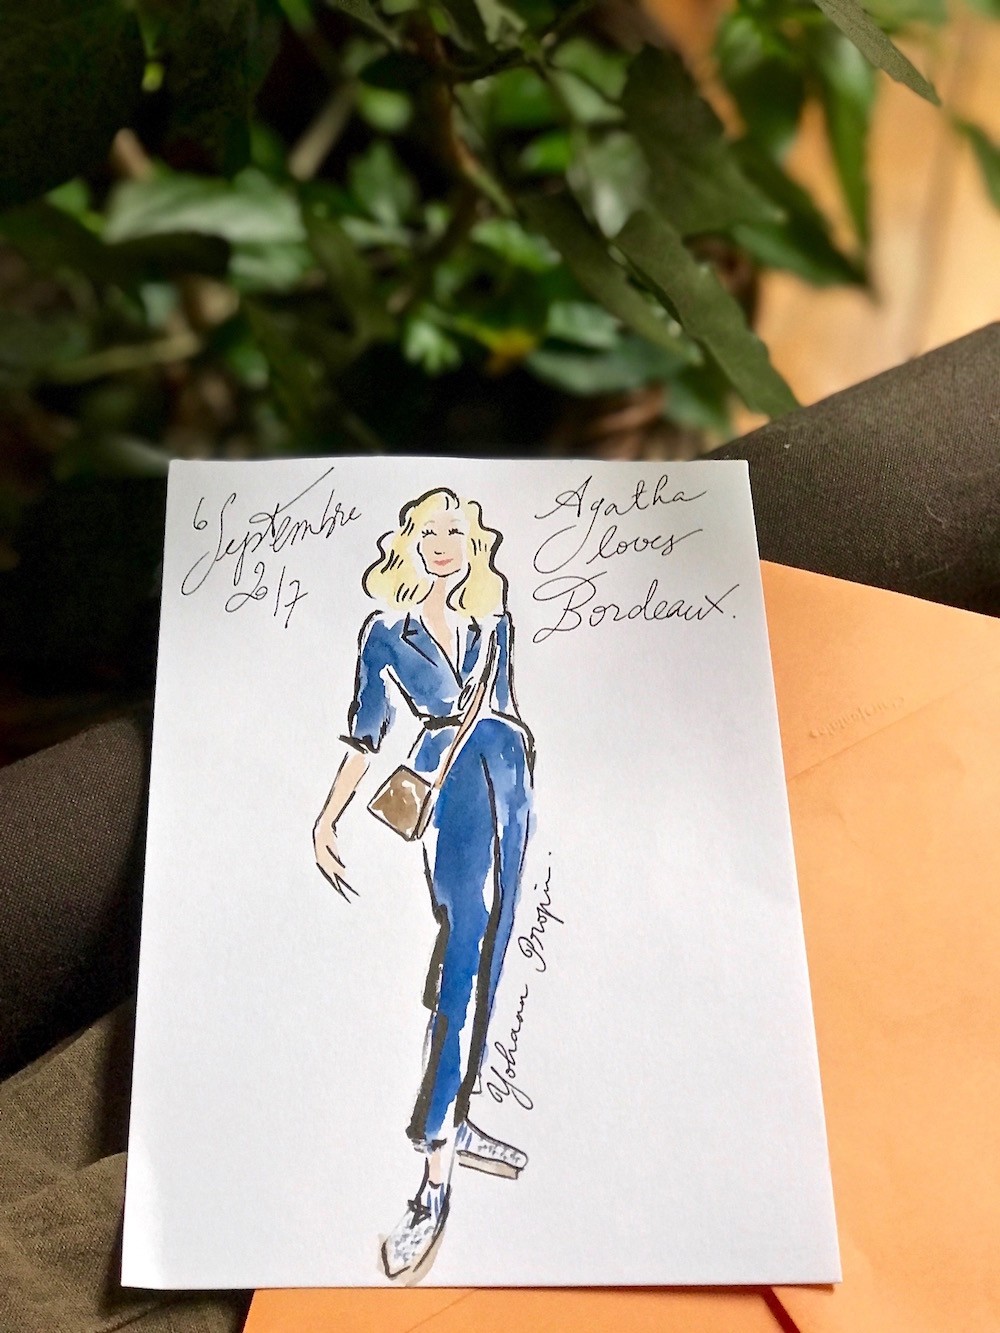 6
Septembre
2017
Agatha
loves
Bordeaux.
Yohann Propin.